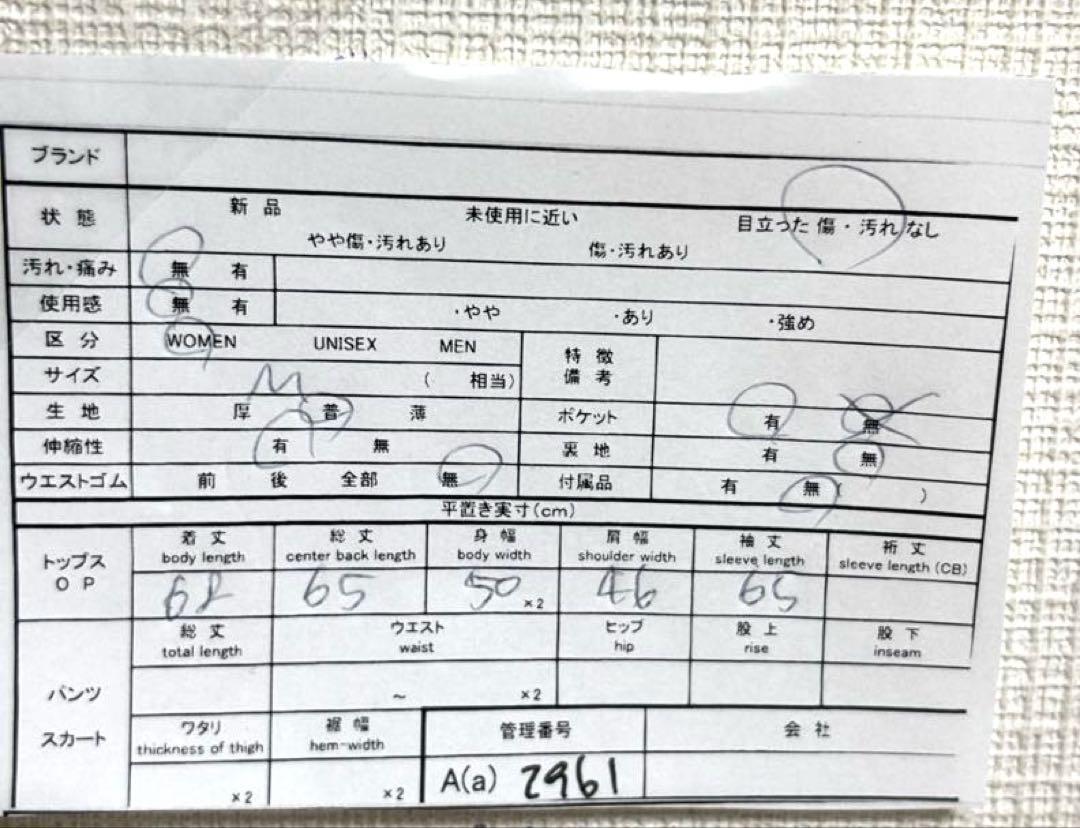 ブランド
状態 新品 未使用に近い 目立った傷・汚れなし
やや傷・汚れあり 傷・汚れあり
汚れ・痛み 無 有
使用感 無 有 ・やや ・あり ・強め
区分 WOMEN UNISEX MEN 特徴
備考
サイズ M ( 相当)
生地 厚 普 薄 ポケット 有 無
伸縮性 有 無 裏地 有 無
ウエストゴム 前 後 全部 無 付属品 有 無 ( )
平置き実寸(cm)
トップス
OP
着丈 総丈 身幅 肩幅 袖丈 裄丈
body length center back length body width shoulder width sleeve length sleeve length (CB)
68 65 50 ×2 46 65
パンツ
スカート
総丈 ウエスト ヒップ 股上 股下
total length waist hip rise inseam
～ ×2
ワタリ 裾幅 管理番号 会社
thickness of thigh hem-width
×2 ×2 A(a) 2961